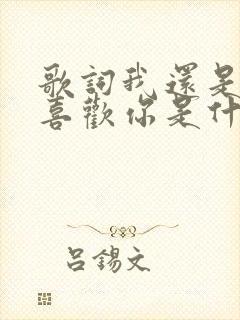 歌詞我還是
喜歡你是什
呂錫文